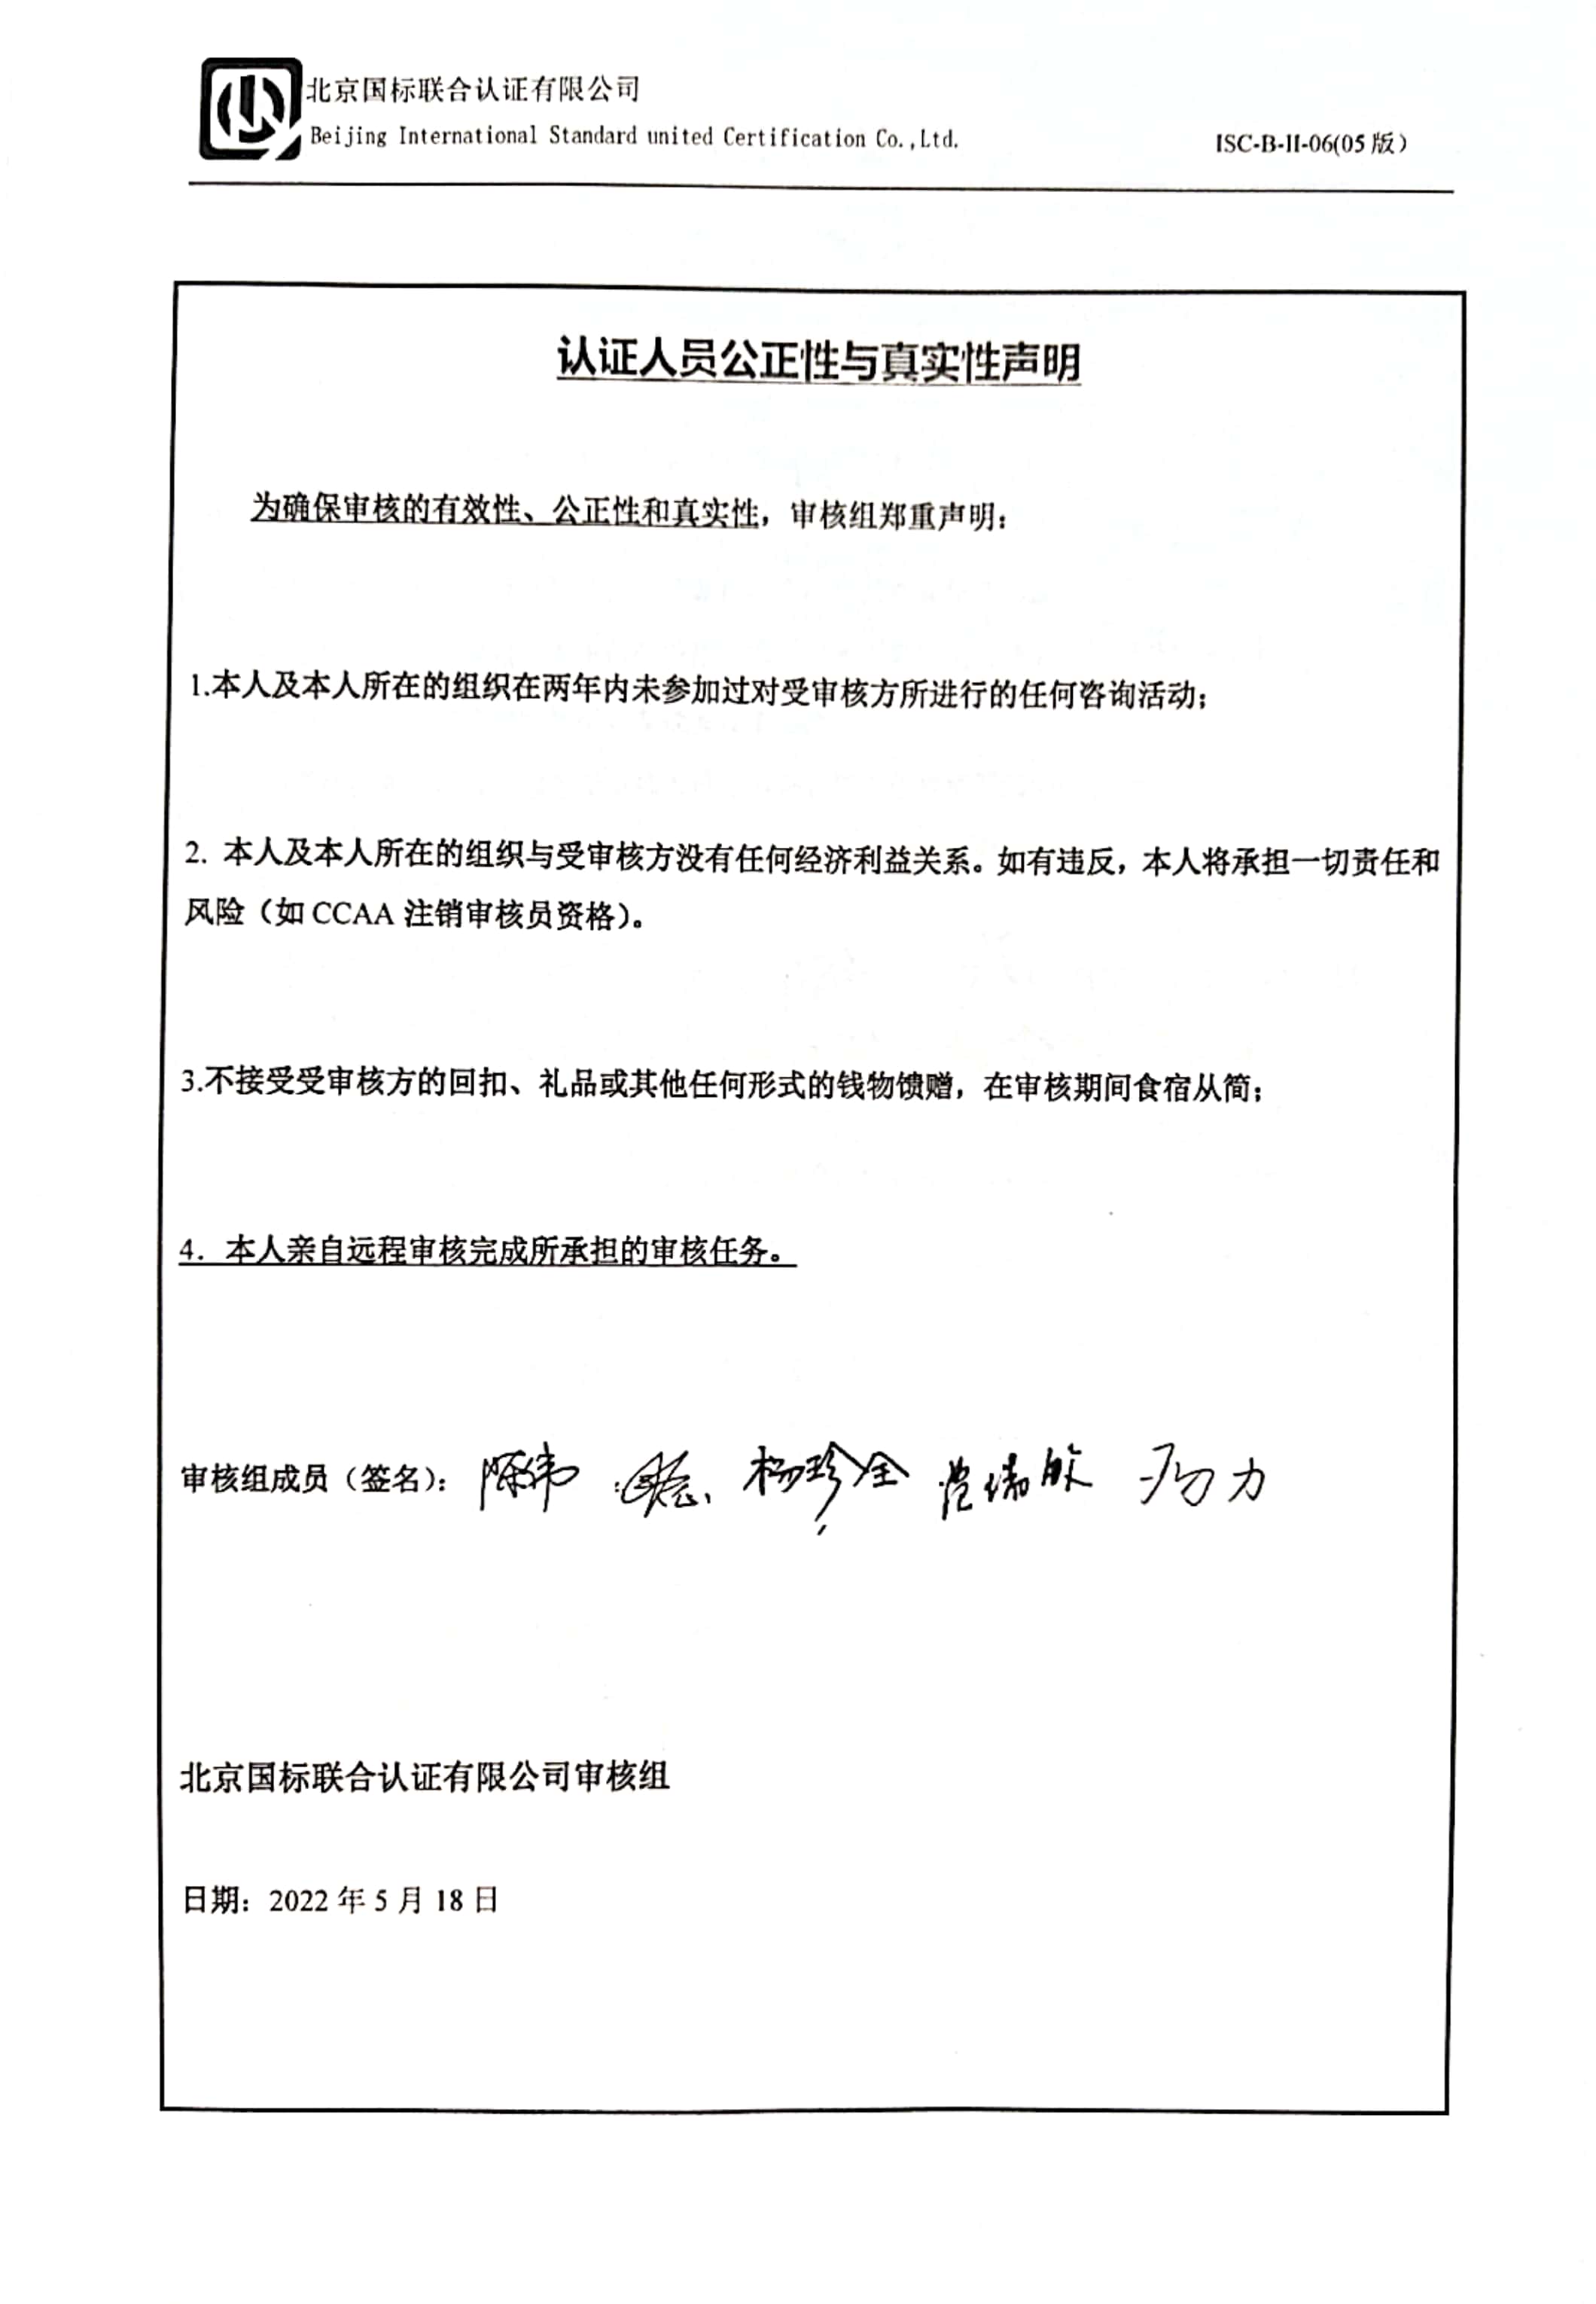 北京国标联合认证有限公司
Beijing International Standard united Certification Co.,Ltd.
ISC-B-II-06(05 版)
认证人员公正性与真实性声明
为确保审核的有效性、公正性和真实性，审核组郑重声明：
1.本人及本人所在的组织在两年内未参加过对受审核方所进行的任何咨询活动；
2. 本人及本人所在的组织与受审核方没有任何经济利益关系。如有违反，本人将承担一切责任和
风险（如 CCAA 注销审核员资格）。
3.不接受受审核方的回扣、礼品或其他任何形式的钱物馈赠，在审核期间食宿从简；
4. 本人亲自远程审核完成所承担的审核任务。
审核组成员（签名）： 陈伟 杨珍全
北京国标联合认证有限公司审核组
日期：2022 年 5 月 18 日